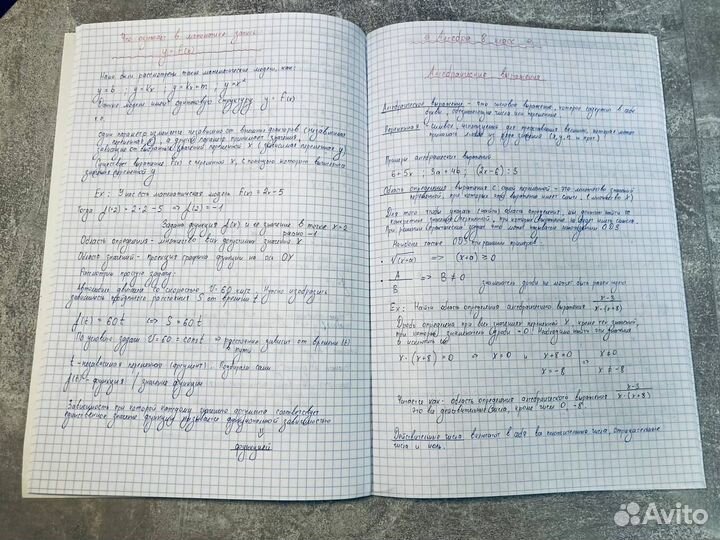 Что означает в математике запись
y = f(x)
Нами были рассмотрены такие математические модели, как:
y = b ; y = kx ; y = kx+m ; y = x²
Данные модели имеют одинаковую структуру y = f(x)
т.е.
один параметр изменяется независимо от внешних факторов (независимая
переменная x), а другой параметр принимает значения,
зависящие от выбранных значений переменной x (зависимая переменная y)
Существует выражение f(x) с переменной x, с помощью которого вычисляется
значение переменной y
Ex: У нас есть математическая модель f(x) = 2x-5
Тогда f(2) = 2·2-5 ⇒ f(2) = -1
Задана функция f(x) и ее значение в точке x=2
равно -1
Область определения - множество всех допустимых значений x
Область значений - проекция графика функции на ось OY
Рассмотрим простую задачу:
Автомобиль двигался со скоростью V=60 км/ч. Нужно изобразить
зависимость пройденного расстояния S от времени t
f(t) = 60t ⇔ S = 60t
По условию задачи V=60=const ⇒ расстояние зависит от времени (t)
пути
t - независимая переменная (аргумент). Подбирали сами
f(x) - функция / значение функции
Зависимость при которой каждому значению аргумента соответствует
единственное значение функции называется функциональной зависимостью
или
функцией
Алгебра 8 класс
Алгебраические выражения
Алгебраическое выражение - это числовое выражение, которое содержит в себе
буквы, обозначающие числа или переменные.
Переменная - символ, используемый для представления величины, которая может
принимать любое из ряда значений (x, y, z и проч.)
Примеры алгебраических выражений
6 + 5x ; 3a + 4b ; (2x - 6) : 3
Область определения выражения с одной переменной - это множество значений
переменной, при которых это выражение имеет смысл.
Для того чтобы указать (найти) область определения, мы должны найти те
конкретные значения переменной, при которых выражение не будет иметь смысла.
ОДЗ
Наиболее частые ОДЗ при решении примеров:
· √(x+a) ⇒ (x+a) ≥ 0
· A/B ⇒ B ≠ 0
знаменатель дроби не может быть равен нулю
Ex: Найти область определения алгебраического выражения (x-3)/(x·(x+8))
Дробь определена при всех значениях переменной x, кроме тех значений,
при которых знаменатель дроби = 0! Необходимо найти эти значения
и исключить их
x·(x+8) = 0 ⇒ x = 0 и x+8 = 0 ⇒ x ≠ 0
x = -8 x ≠ -8
Читается как: область определения алгебраического выражения (x-3)/(x·(x+8))
это все действительные числа, кроме чисел 0, -8.
Действительные числа включают в себя все положительные числа, отрицательные
числа и ноль.
Avito